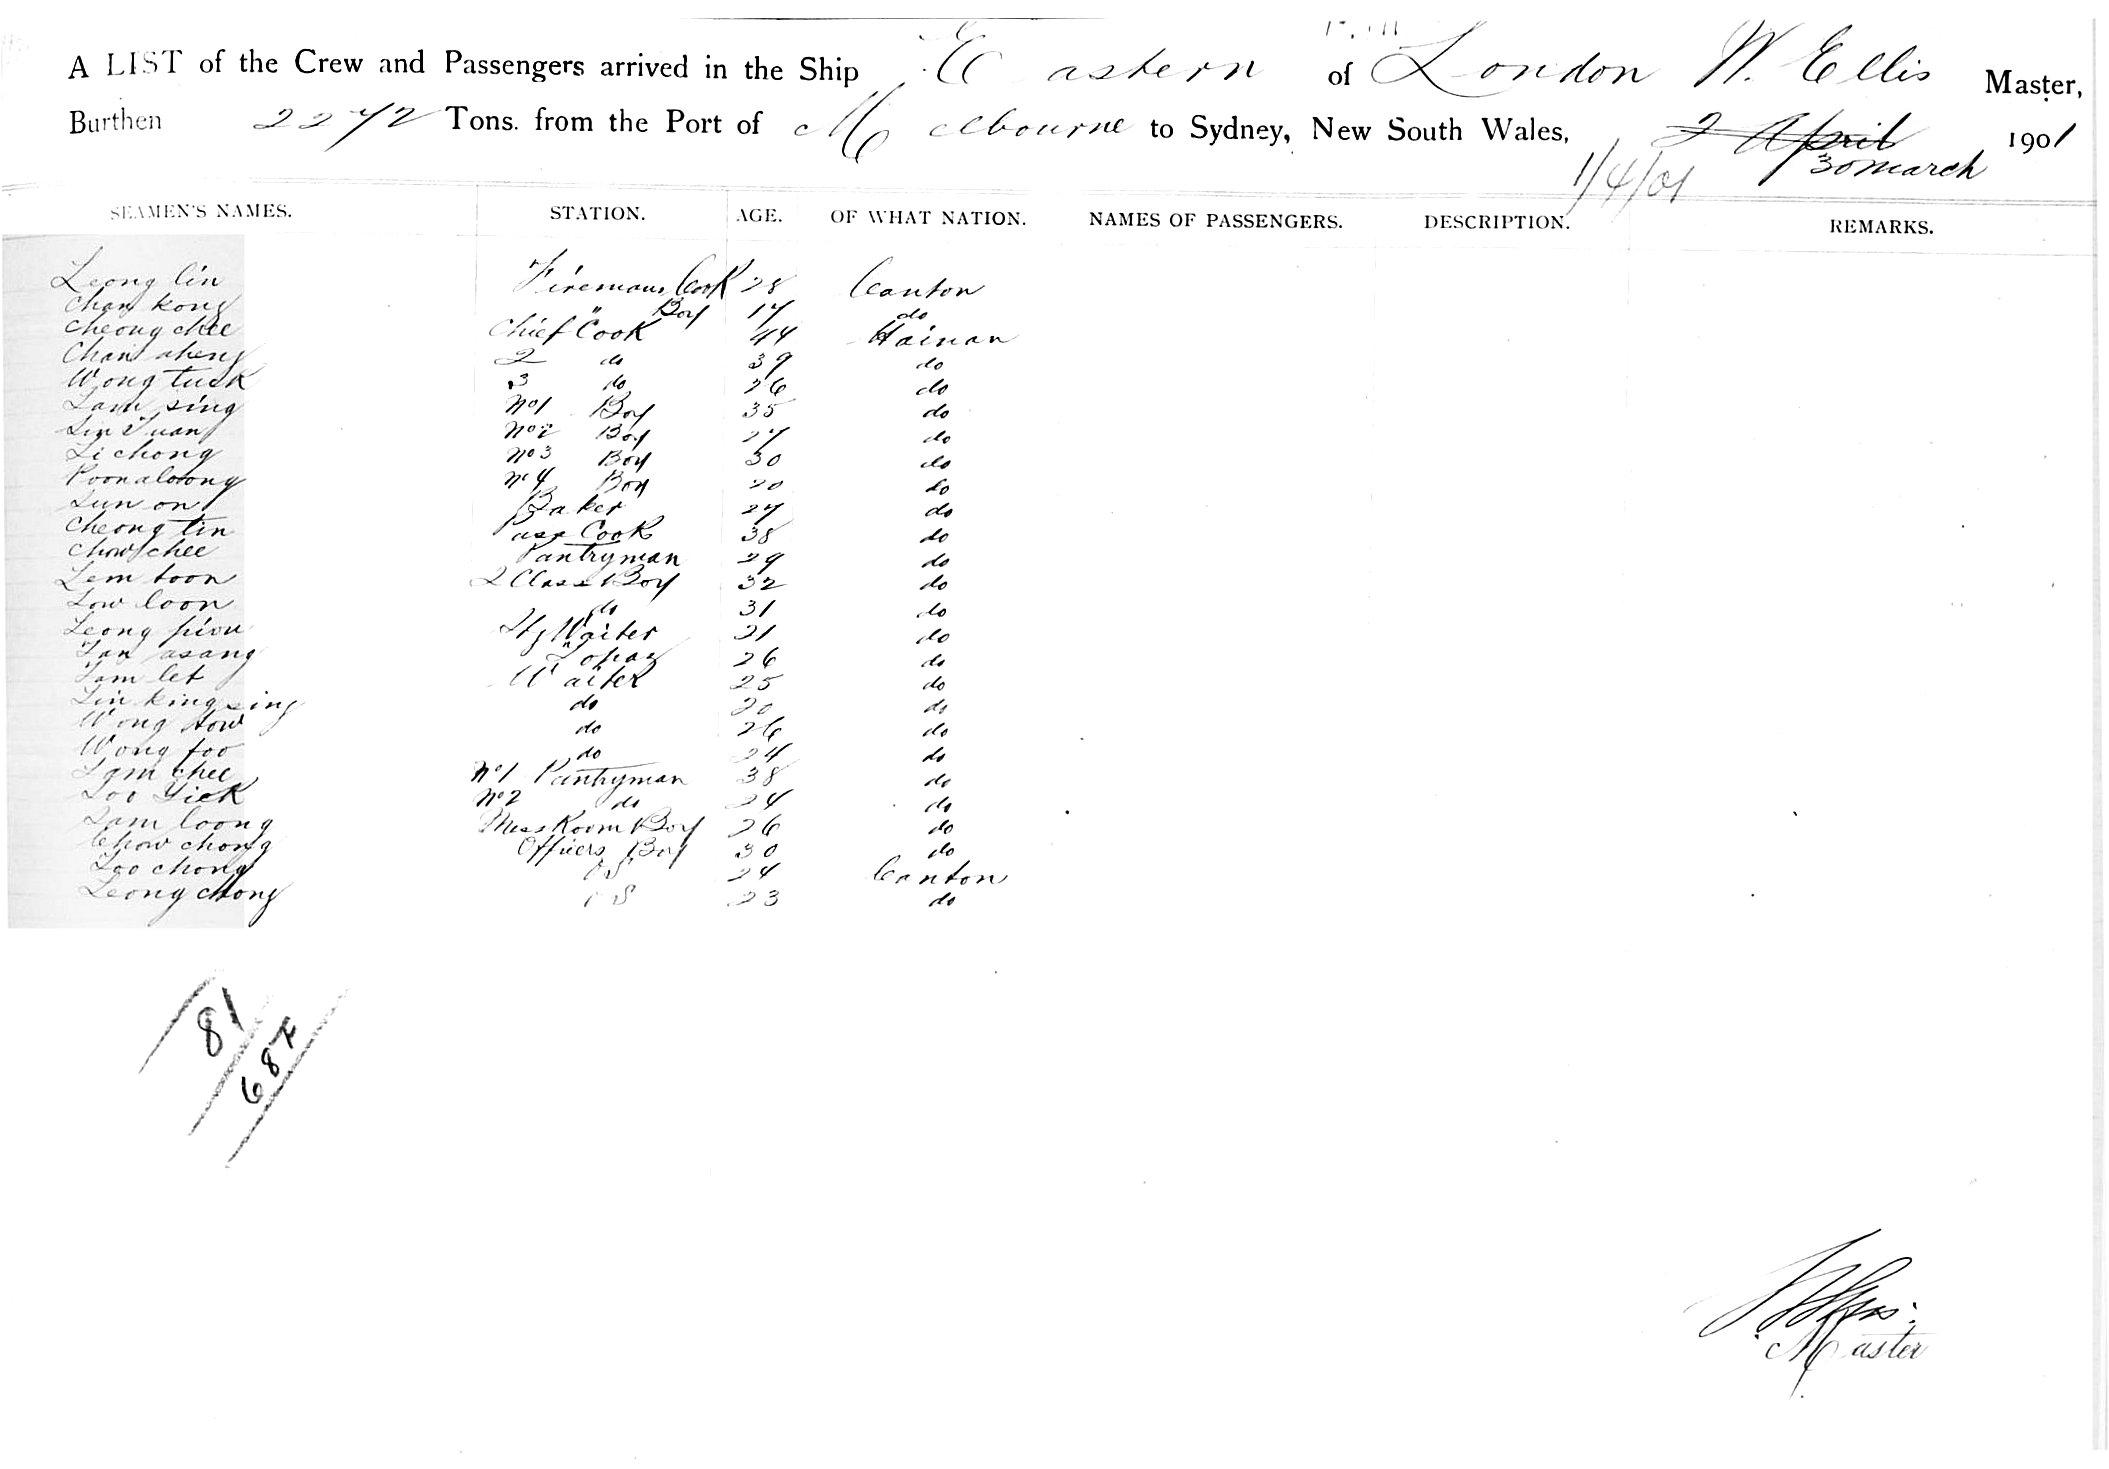 A LIST of the Crew and Passengers arrived in the Ship Eastern of London W. Ellis Master,
Burthen 2272 Tons. from the Port of Melbourne to Sydney, New South Wales, 2 April 1901
30 march
1/4/01
SEAMEN'S NAMES. STATION. AGE. OF WHAT NATION. NAMES OF PASSENGERS. DESCRIPTION. REMARKS.
Leong lin Firemans Cook 28 Canton
Chan kong " Boy 17 do
Cheong chee Chief Cook 44 Hainan
Chan aheng 2 do 39 do
Wong tuck 3 do 26 do
Lam sing No1 Boy 35 do
Lin Tuan No2 Boy 27 do
Li chong No3 Boy 30 do
Poonaloong No4 Boy 20 do
Lun on Baker 27 do
Cheong tin Pass Cook 38 do
Chow chee Pantryman 29 do
Lem toon 2 Class Boy 32 do
Low loon do 31 do
Leong piou Waiter 21 do
Tan asang Topaz 26 do
Tam let Waiter 25 do
Lin king sing do 20 do
Wong how do 26 do
Wong foo do 24 do
Lam chee No1 Pantryman 38 do
Loo Yick No2 do 24 do
Lam loong Mess Room Boy 26 do
Chow chong Officers Boy 30 do
Loo chong OS 24 Canton
Leong chong OS 23 do
81
687
Master